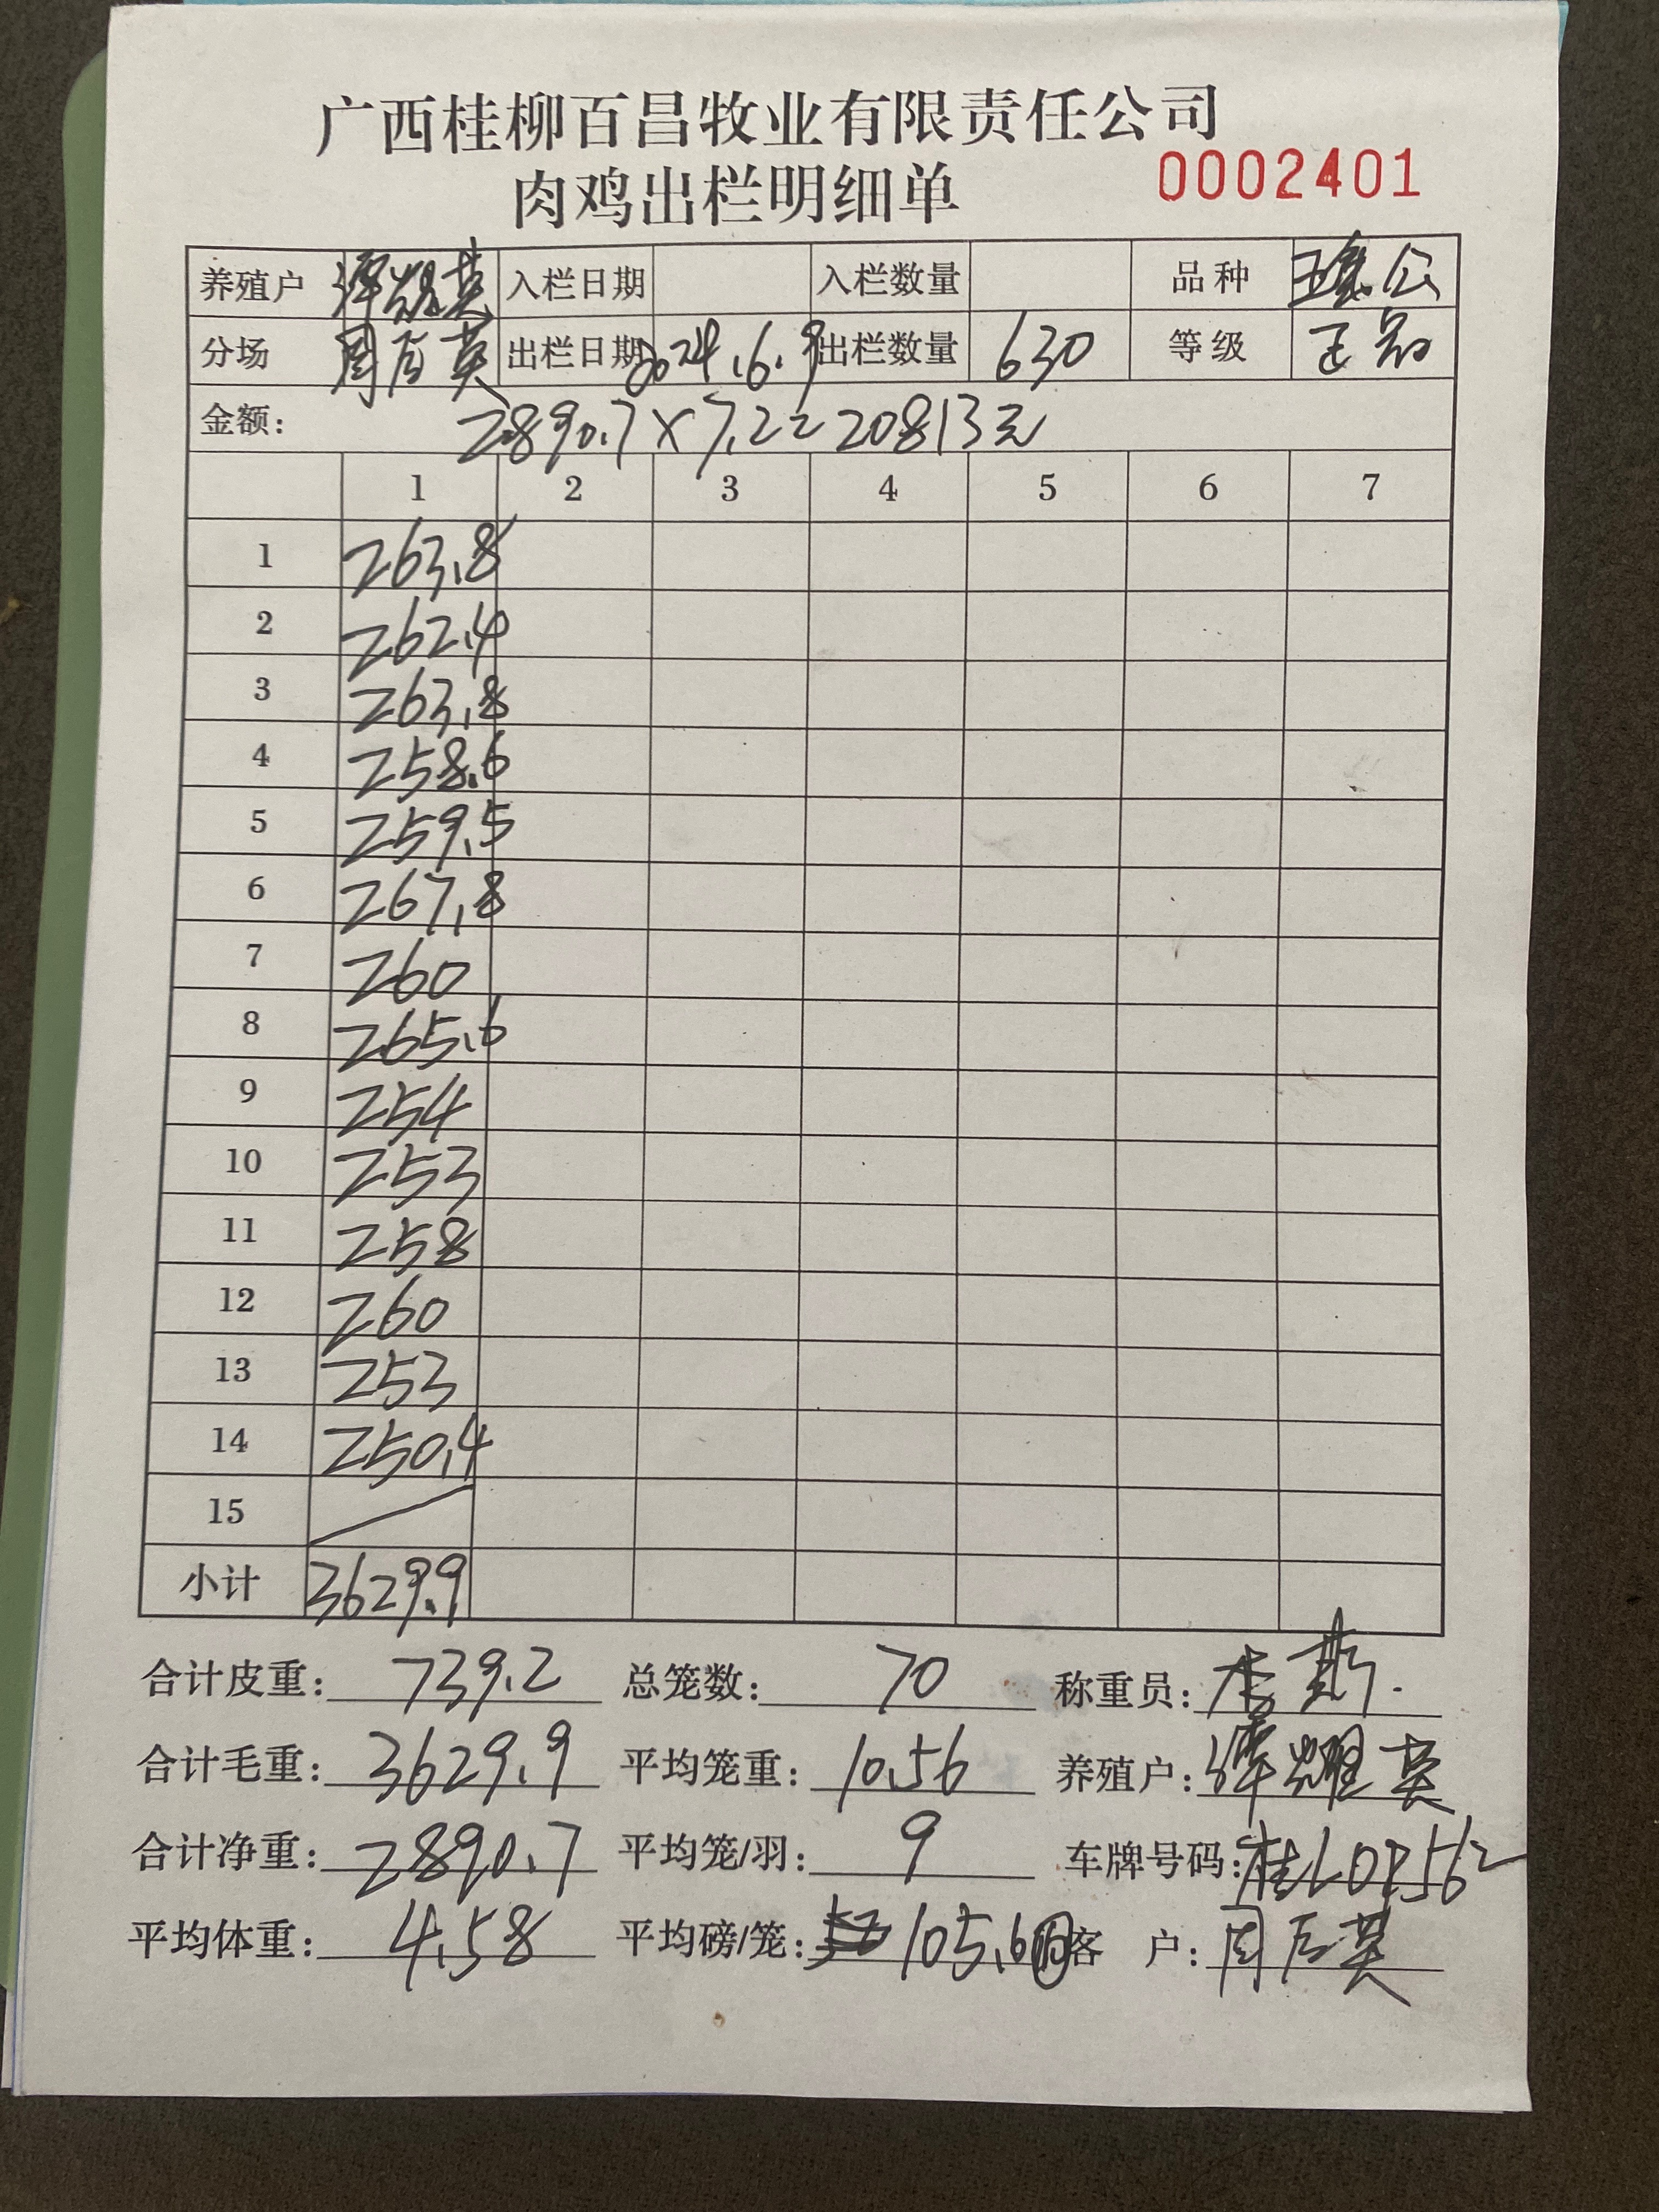 广西桂柳百昌牧业有限责任公司
肉鸡出栏明细单 0002401
养殖户 谭耀英 入栏日期 入栏数量 品种 公
分场 周 英 出栏日期 2024.6.9 出栏数量 630 等级 正品
金额: 2890.7×7.2=20813元
1 2 3 4 5 6 7
1 263.8
2 262.4
3 263.8
4 258.6
5 259.5
6 267.8
7 260
8 265.6
9 254
10 253
11 258
12 260
13 253
14 250.4
15
小计 3629.9
合计皮重: 739.2 总笼数: 70 称重员: 李
合计毛重: 3629.9 平均笼重: 10.56 养殖户: 谭耀英
合计净重: 2890.7 平均笼/羽: 9 车牌号码:
平均体重: 4.58 平均磅/笼: 105.6 客 户: 周 英